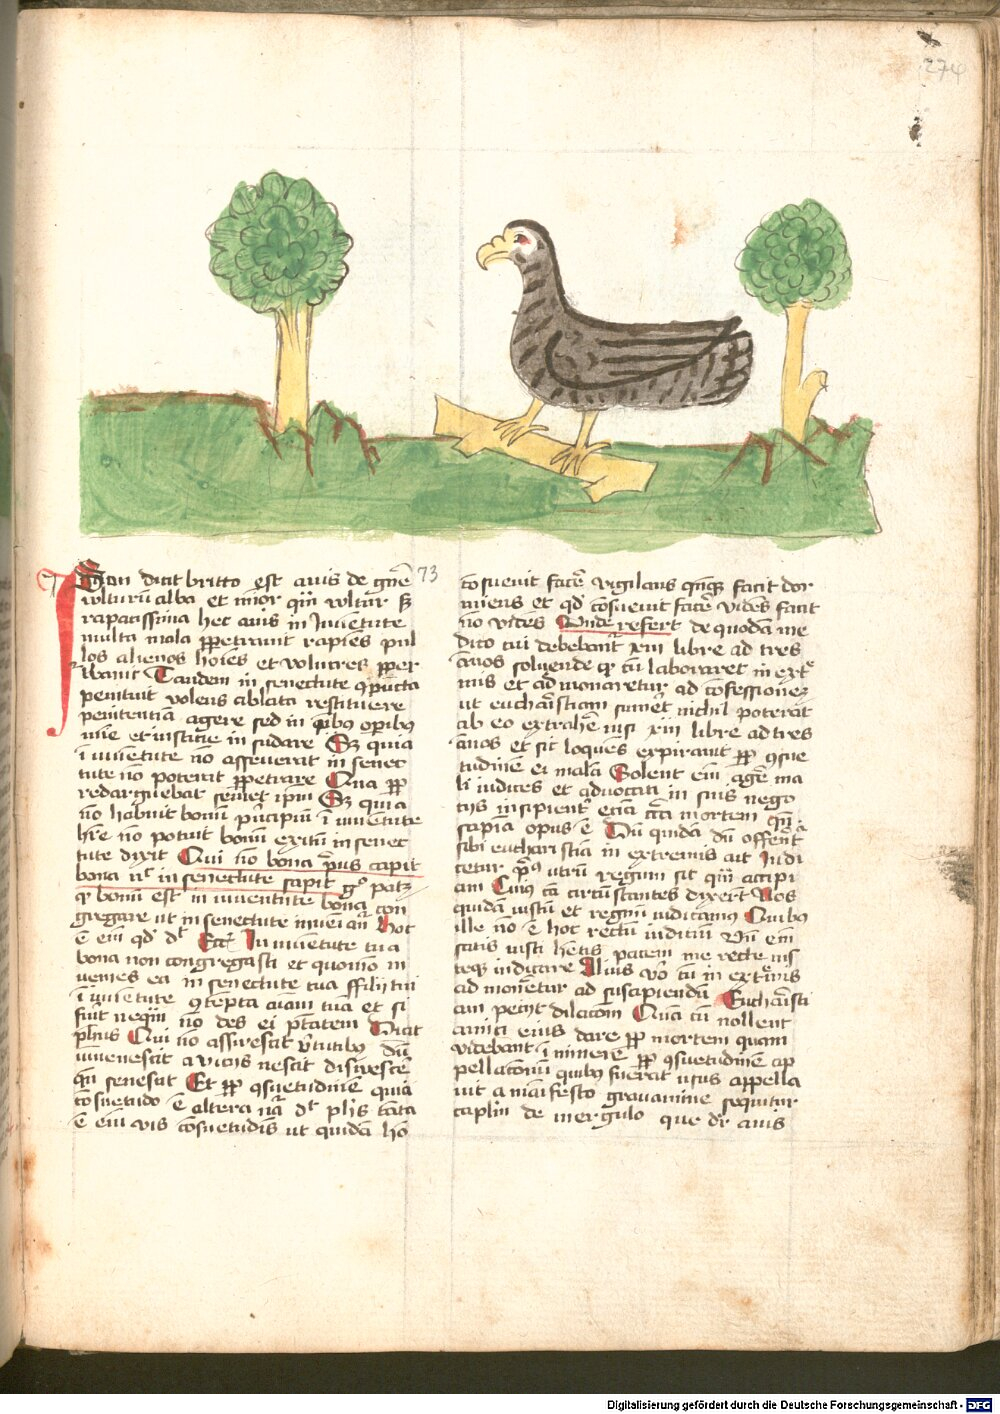 274
73
Ibion dicit britto est auis de gn̄e
vlturū alba et mīor qm̄ vltur sꝫ
rapacissima hec auis in Iuuētute
multa mala ꝑpetrauit rapiēs pul
los alienos hoīes et volucres ꝑper
Tandem in senectute 9pūcta
penituit volens ablata restituere
penitentiā agere sed in qͥbus oꝑibꝰ
et iusticie in sudare Sꝫ quia
ī iuuētute nō assueuerat in senec
tute nō poterat ꝑpetrare Una ꝑꝑ
redarguebat semet ipm̄ Sꝫ quia
nō habuit bonū pͥncipiū ī iuuētute
nō potuit bonū exitū in senec
tute dixit Qui nō bona pͥus capit
bona nͨ in senectute sapit gͦ patꝫ
bonū est in iuuentute bona con
gregare ut in senectute Hoc
ē eī qd' dꝛ Ecc̄ⁱ In iuuētute tua
bona non congregasti et quomō in
uenies ea in senectute tua ffilii tui
ī iuuētute 9tēpta aīam tuā et si
fuit neqͣm nō des ei ptātem Dicit
ph̄us Qui nō assuescit vͥtutibꝰ dū
iuuenescit a viciis nescit disuescē
qn̄ senescit Et ꝑꝑ 9suetudinē quia
cōsuetudo ē altera nͣ dꝛ ph̄s tāta
ē eī vis cōsuetudīs ut quidā hō
cōsueuit facē vigilans qn̄qꝫ facit dor
miens et qd' cōsueuit facē vidēs facit
nō vidēs Unde refert de quodā me
dico cui debebant xiii libre ad tres
annos soluende qͥ cū laboraret in extͤ
mis et admonaretur ad cōfessionem
ut euchͣristiam sumēt nichil poterāt
ab eo extrahē nisi xiii libre ad tres
annos et sic loquēs expirauit ꝑꝑ 9sue
tudinē ei malā Solent eī agē ma
li iudices et aduocati in suis nego
ciis insipientͬ eciā mortem qn̄
sapīa opus ē Cū quidā dū offerͬ
sibi eucharistia in extremis ait Iudi
cetur pͥꝰ utrū regnum sit qm̄ accipi
am Cuiꝰ cā circūstantes dixerūt Nos
quidā iustū et regnū iudicamꝰ Quibꝰ
ille nō ē hoc rectū iudiciū Cū eī
satis iusti hētis ꝑatem me recte nis
teqꝫ indicare Alius vͦ cū in extͤmis
ad monētur ad suscipiendā Eucharisti
am peciit dilacōm Quā cū nollent
amici eius dare ꝑꝑ mortem quam
videbant īminere ꝑꝑ 9suetudinē ap
pellaconū quibꝰ fuerat usus appella
uit a manifesto grauamine sequitur
capl̄m de mergulo que dꝛ auis
Digitalisierung gefördert durch die Deutsche Forschungsgemeinschaft - DFG